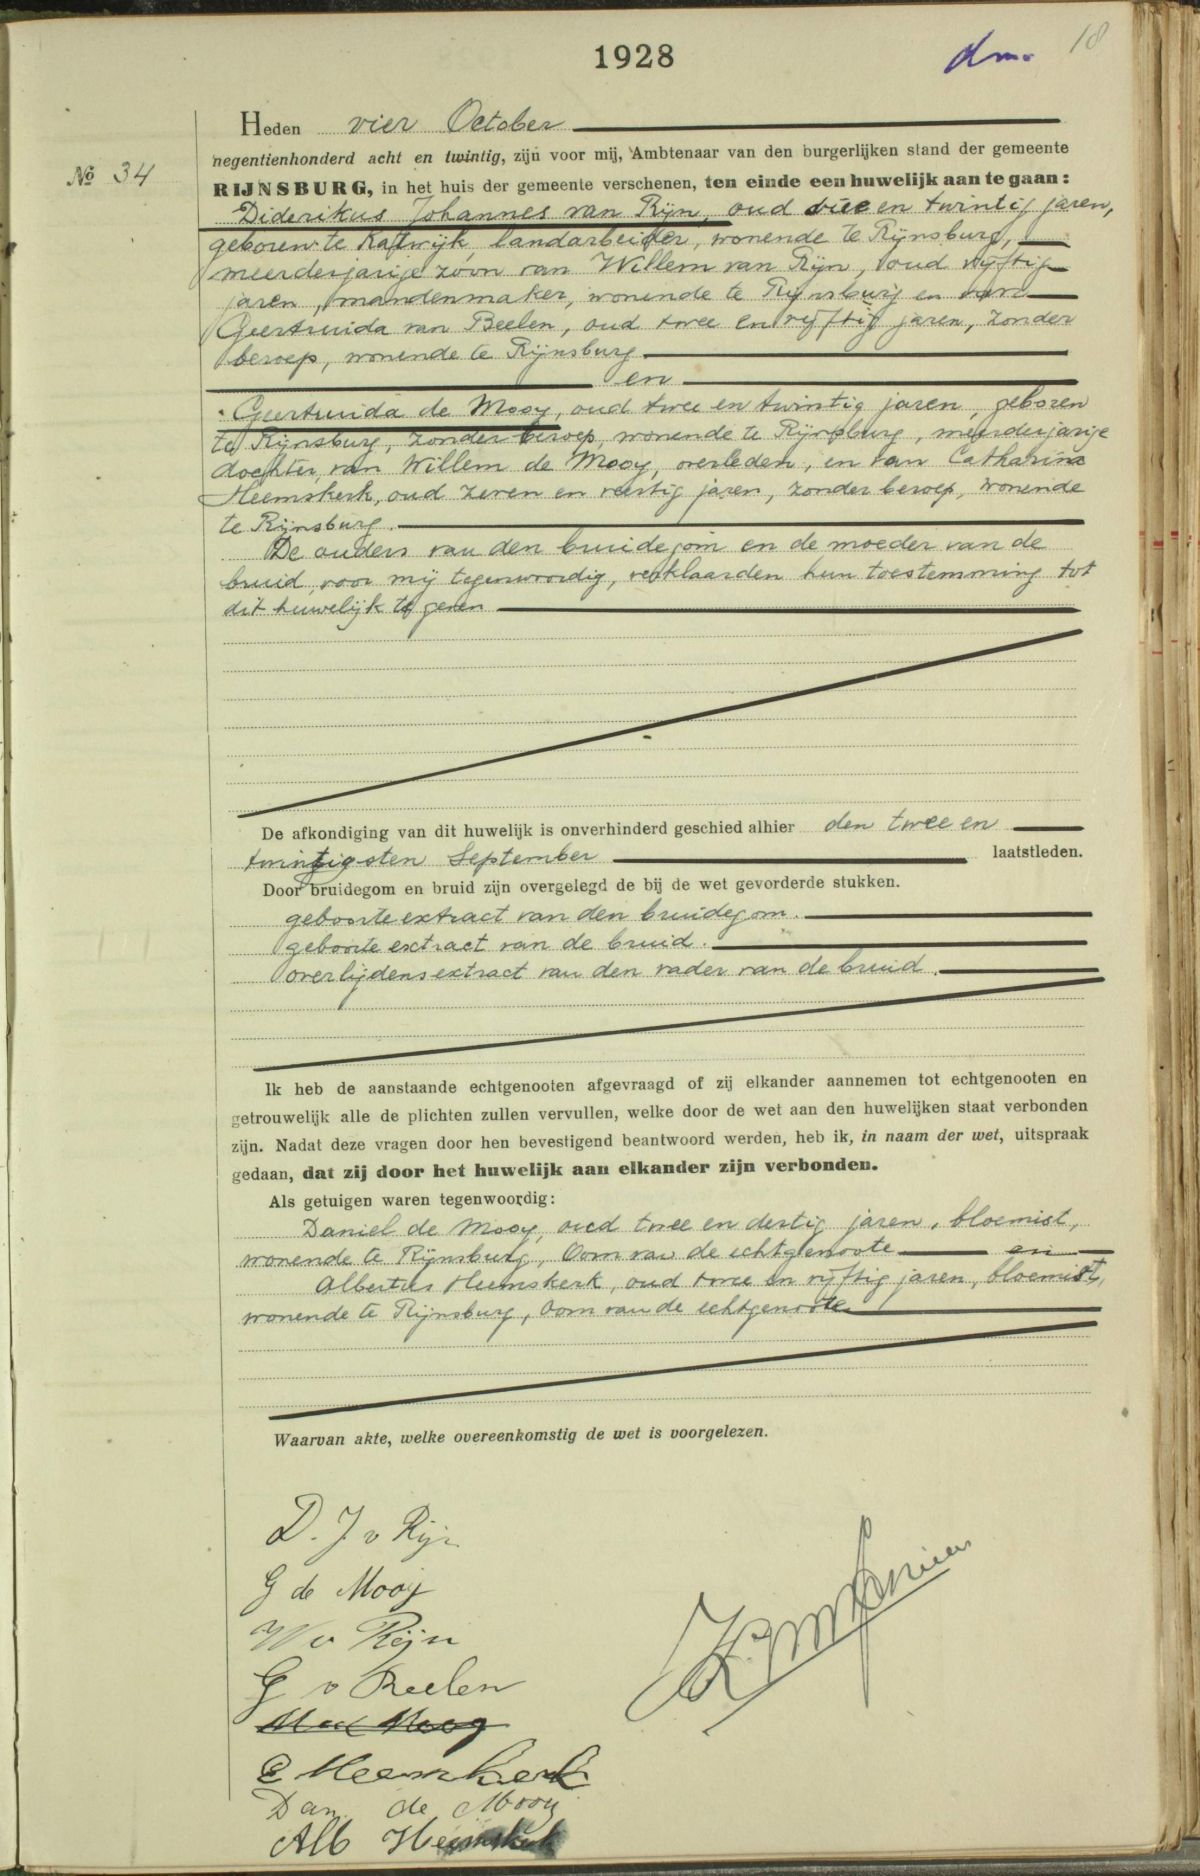 1928
dm.
18
Heden vier October
negentienhonderd acht en twintig, zijn voor mij, Ambtenaar van den burgerlijken stand der gemeente
No 34
RIJNSBURG, in het huis der gemeente verschenen, ten einde een huwelijk aan te gaan:
Diderikus Johannes van Rijn, oud drie en twintig jaren,
geboren te Katwijk, landarbeider, wonende te Rijnsburg,
meerderjarige zoon van Willem van Rijn, oud vijftig
jaren, mandenmaker, wonende te Rijnsburg en van
Geertruida van Beelen, oud twee en vijftig jaren, zonder
beroep, wonende te Rijnsburg
en
Geertruida de Mooy, oud twee en twintig jaren, geboren
te Rijnsburg, zonder beroep, wonende te Rijnsburg, meerderjarige
dochter van Willem de Mooy, overleden, en van Catharina
Heemskerk, oud zeven en veertig jaren, zonder beroep, wonende
te Rijnsburg.
De ouders van den bruidegom en de moeder van de
bruid, voor mij tegenwoordig, verklaarden hun toestemming tot
dit huwelijk te geven
De afkondiging van dit huwelijk is onverhinderd geschied alhier den twee en
twintigsten September laatstleden.
Door bruidegom en bruid zijn overgelegd de bij de wet gevorderde stukken.
geboorte extract van den bruidegom.
geboorte extract van de bruid.
overlijdens extract van den vader van de bruid.
Ik heb de aanstaande echtgenooten afgevraagd of zij elkander aannemen tot echtgenooten en
getrouwelijk alle de plichten zullen vervullen, welke door de wet aan den huwelijken staat verbonden
zijn. Nadat deze vragen door hen bevestigend beantwoord werden, heb ik, in naam der wet, uitspraak
gedaan, dat zij door het huwelijk aan elkander zijn verbonden.
Als getuigen waren tegenwoordig:
Daniel de Mooy, oud twee en dertig jaren, bloemist,
wonende te Rijnsburg, Oom van de echtgenoote en
Albertus Heemskerk, oud twee en vijftig jaren, bloemist,
wonende te Rijnsburg, Oom van de echtgenoote
Waarvan akte, welke overeenkomstig de wet is voorgelezen.
D. J v Rijn
G de Mooij
W v Rijn
G v Beelen
Mooij
C Heemskerk
Dan. de Mooij
Alb Heemskerk